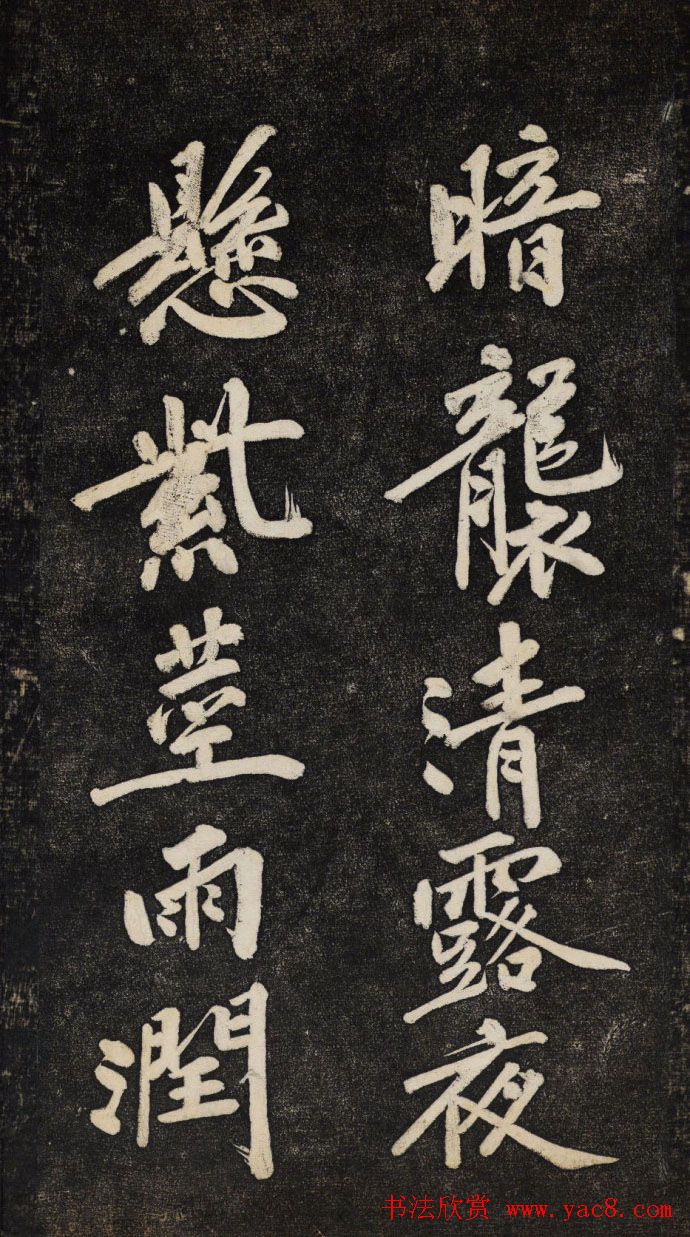 暗襲清露夜
懸紫莖雨潤
书法欣赏 www.yac8.com